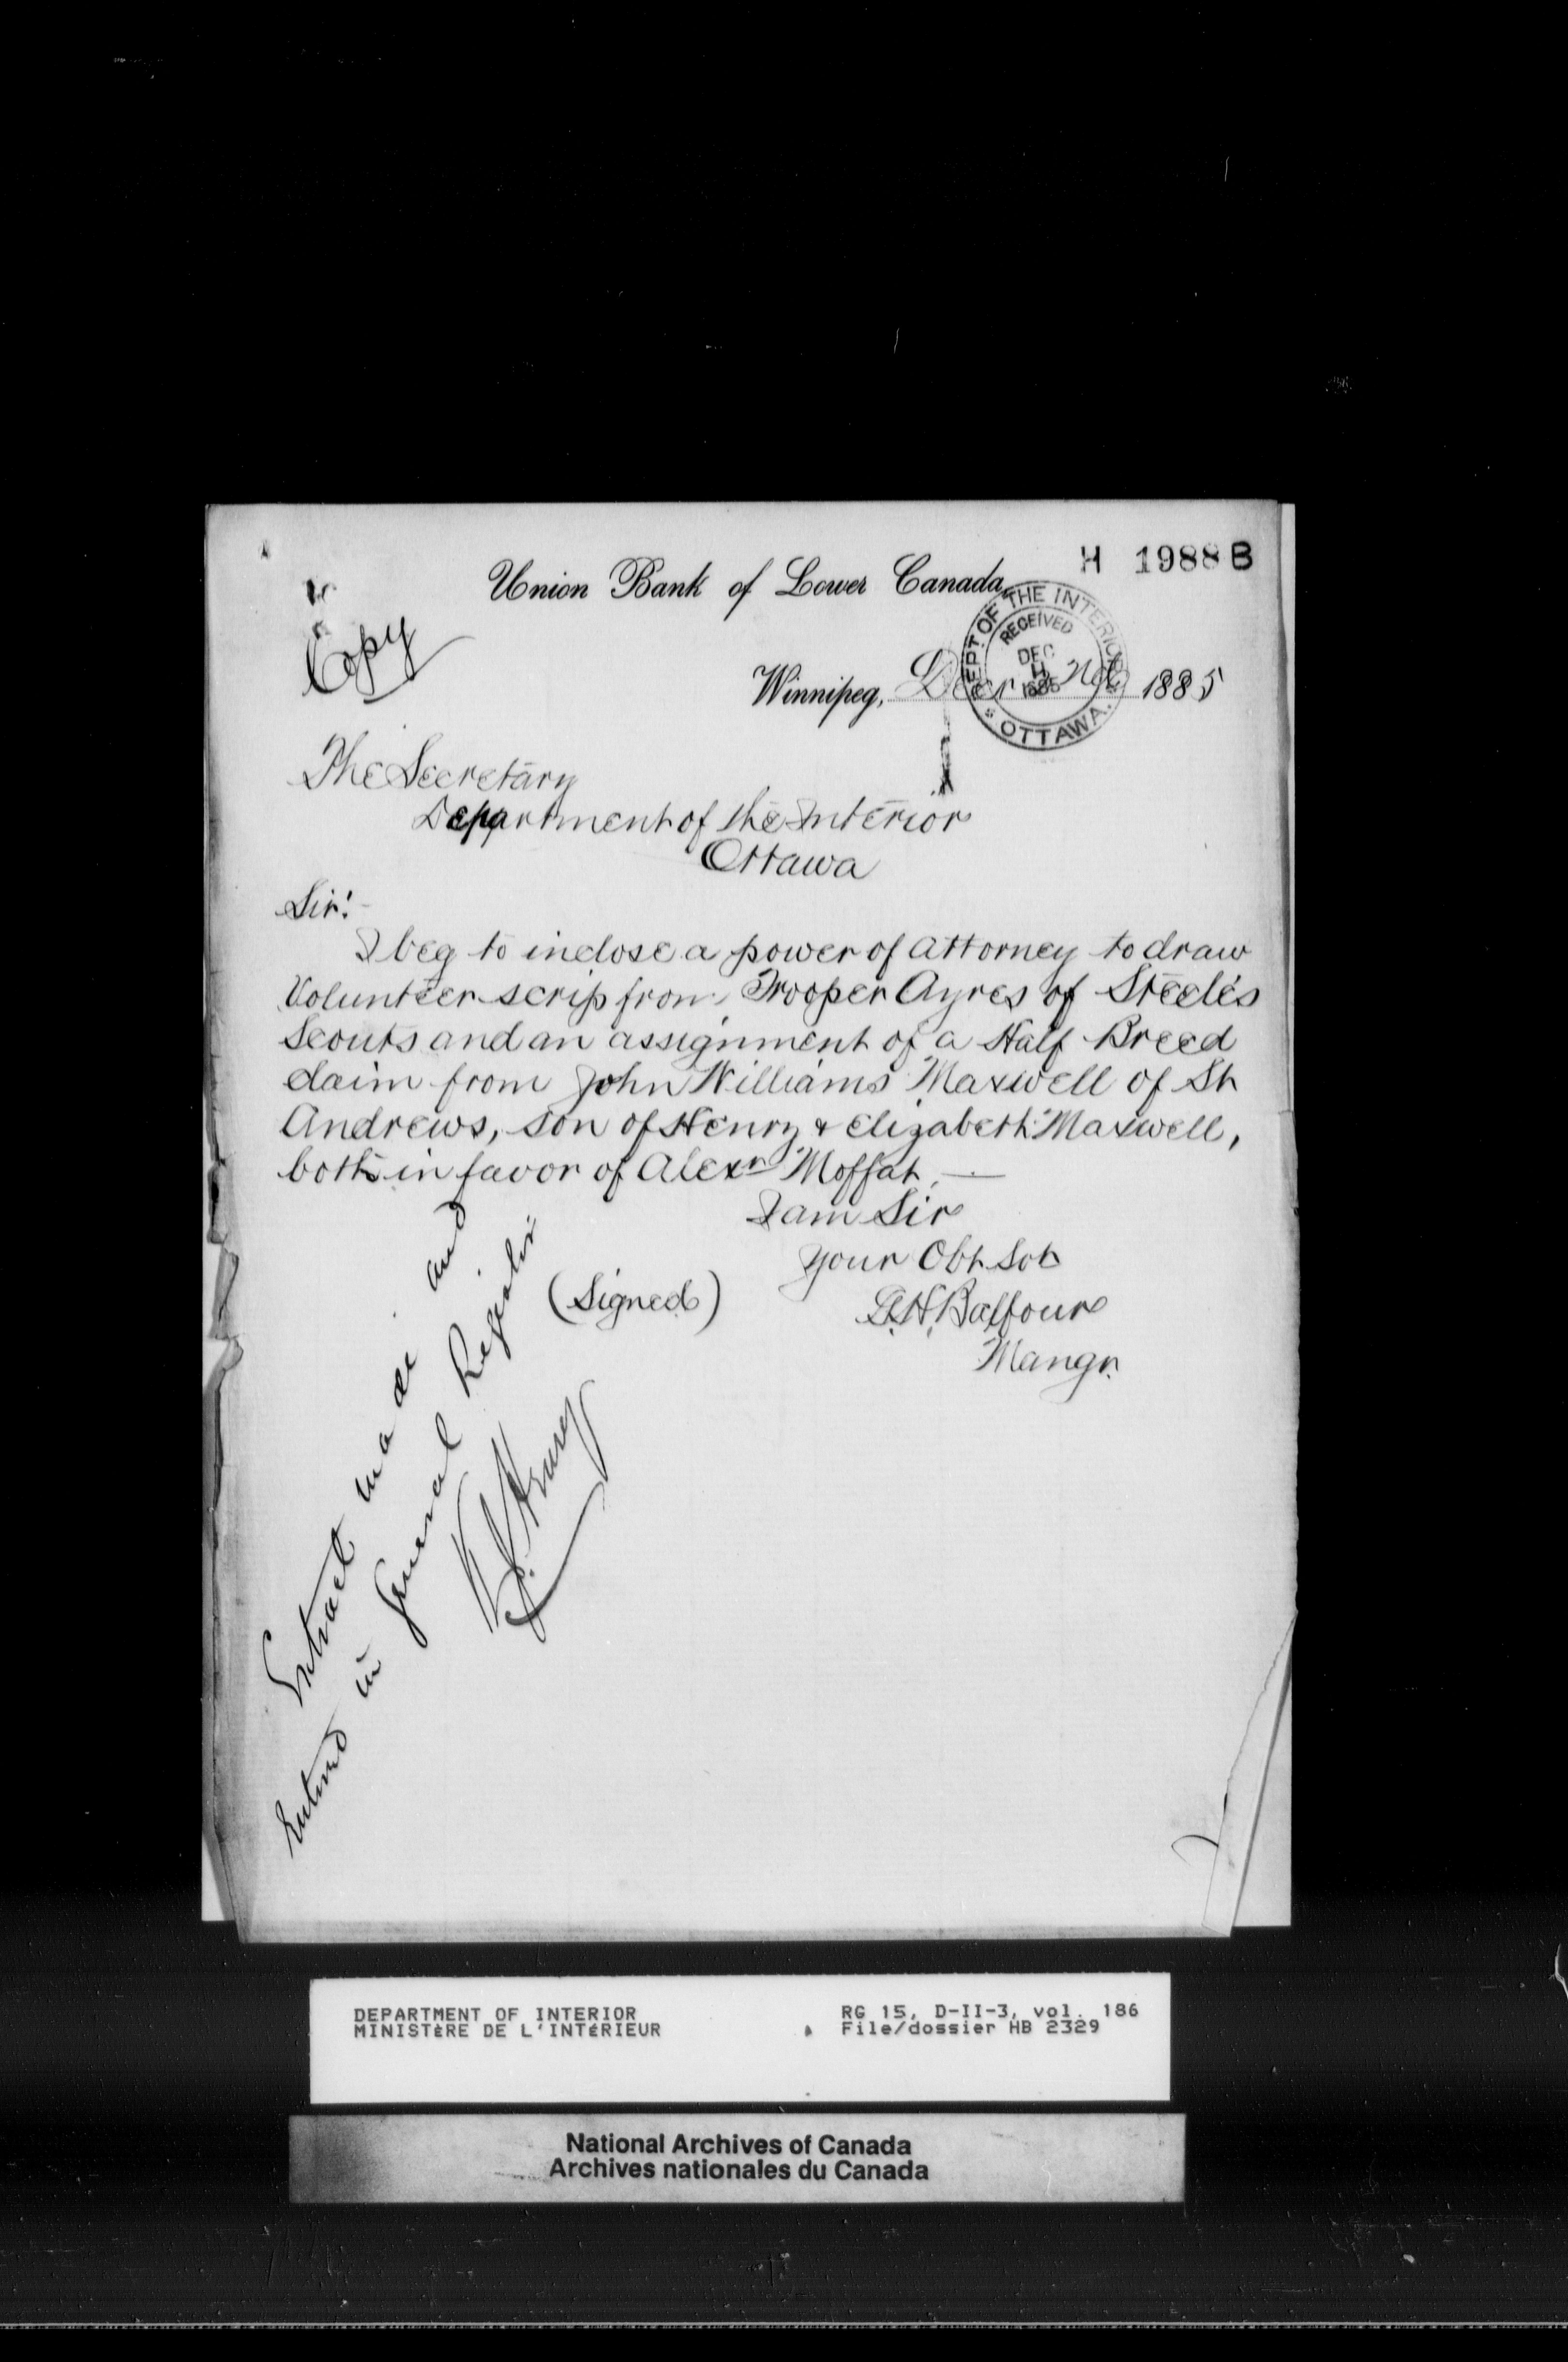 H 1988 B
Union Bank of Lower Canada,
Copy
DEPT. OF THE INTERIOR
RECEIVED
DEC
1885
OTTAWA.
Winnipeg, Decr 1885
The Secretary
Department of the Interior
Ottawa
Sir!
I beg to inclose a power of attorney to draw
Volunteer scrip from Trooper Ayres of Steele's
Scouts and an assignment of a Half Breed
claim from John Williams Maxwell of St
Andrews, son of Henry & Elizabeth Maxwell,
both in favor of Alexr Moffat. —
I am Sir
Your Obt Svt
(Signed) Balfour
Mangr.
Extract made and
entered in General Register
DEPARTMENT OF INTERIOR
MINISTÈRE DE L'INTÉRIEUR
RG 15, D-II-3, vol. 186
File/dossier HB 2329
National Archives of Canada
Archives nationales du Canada